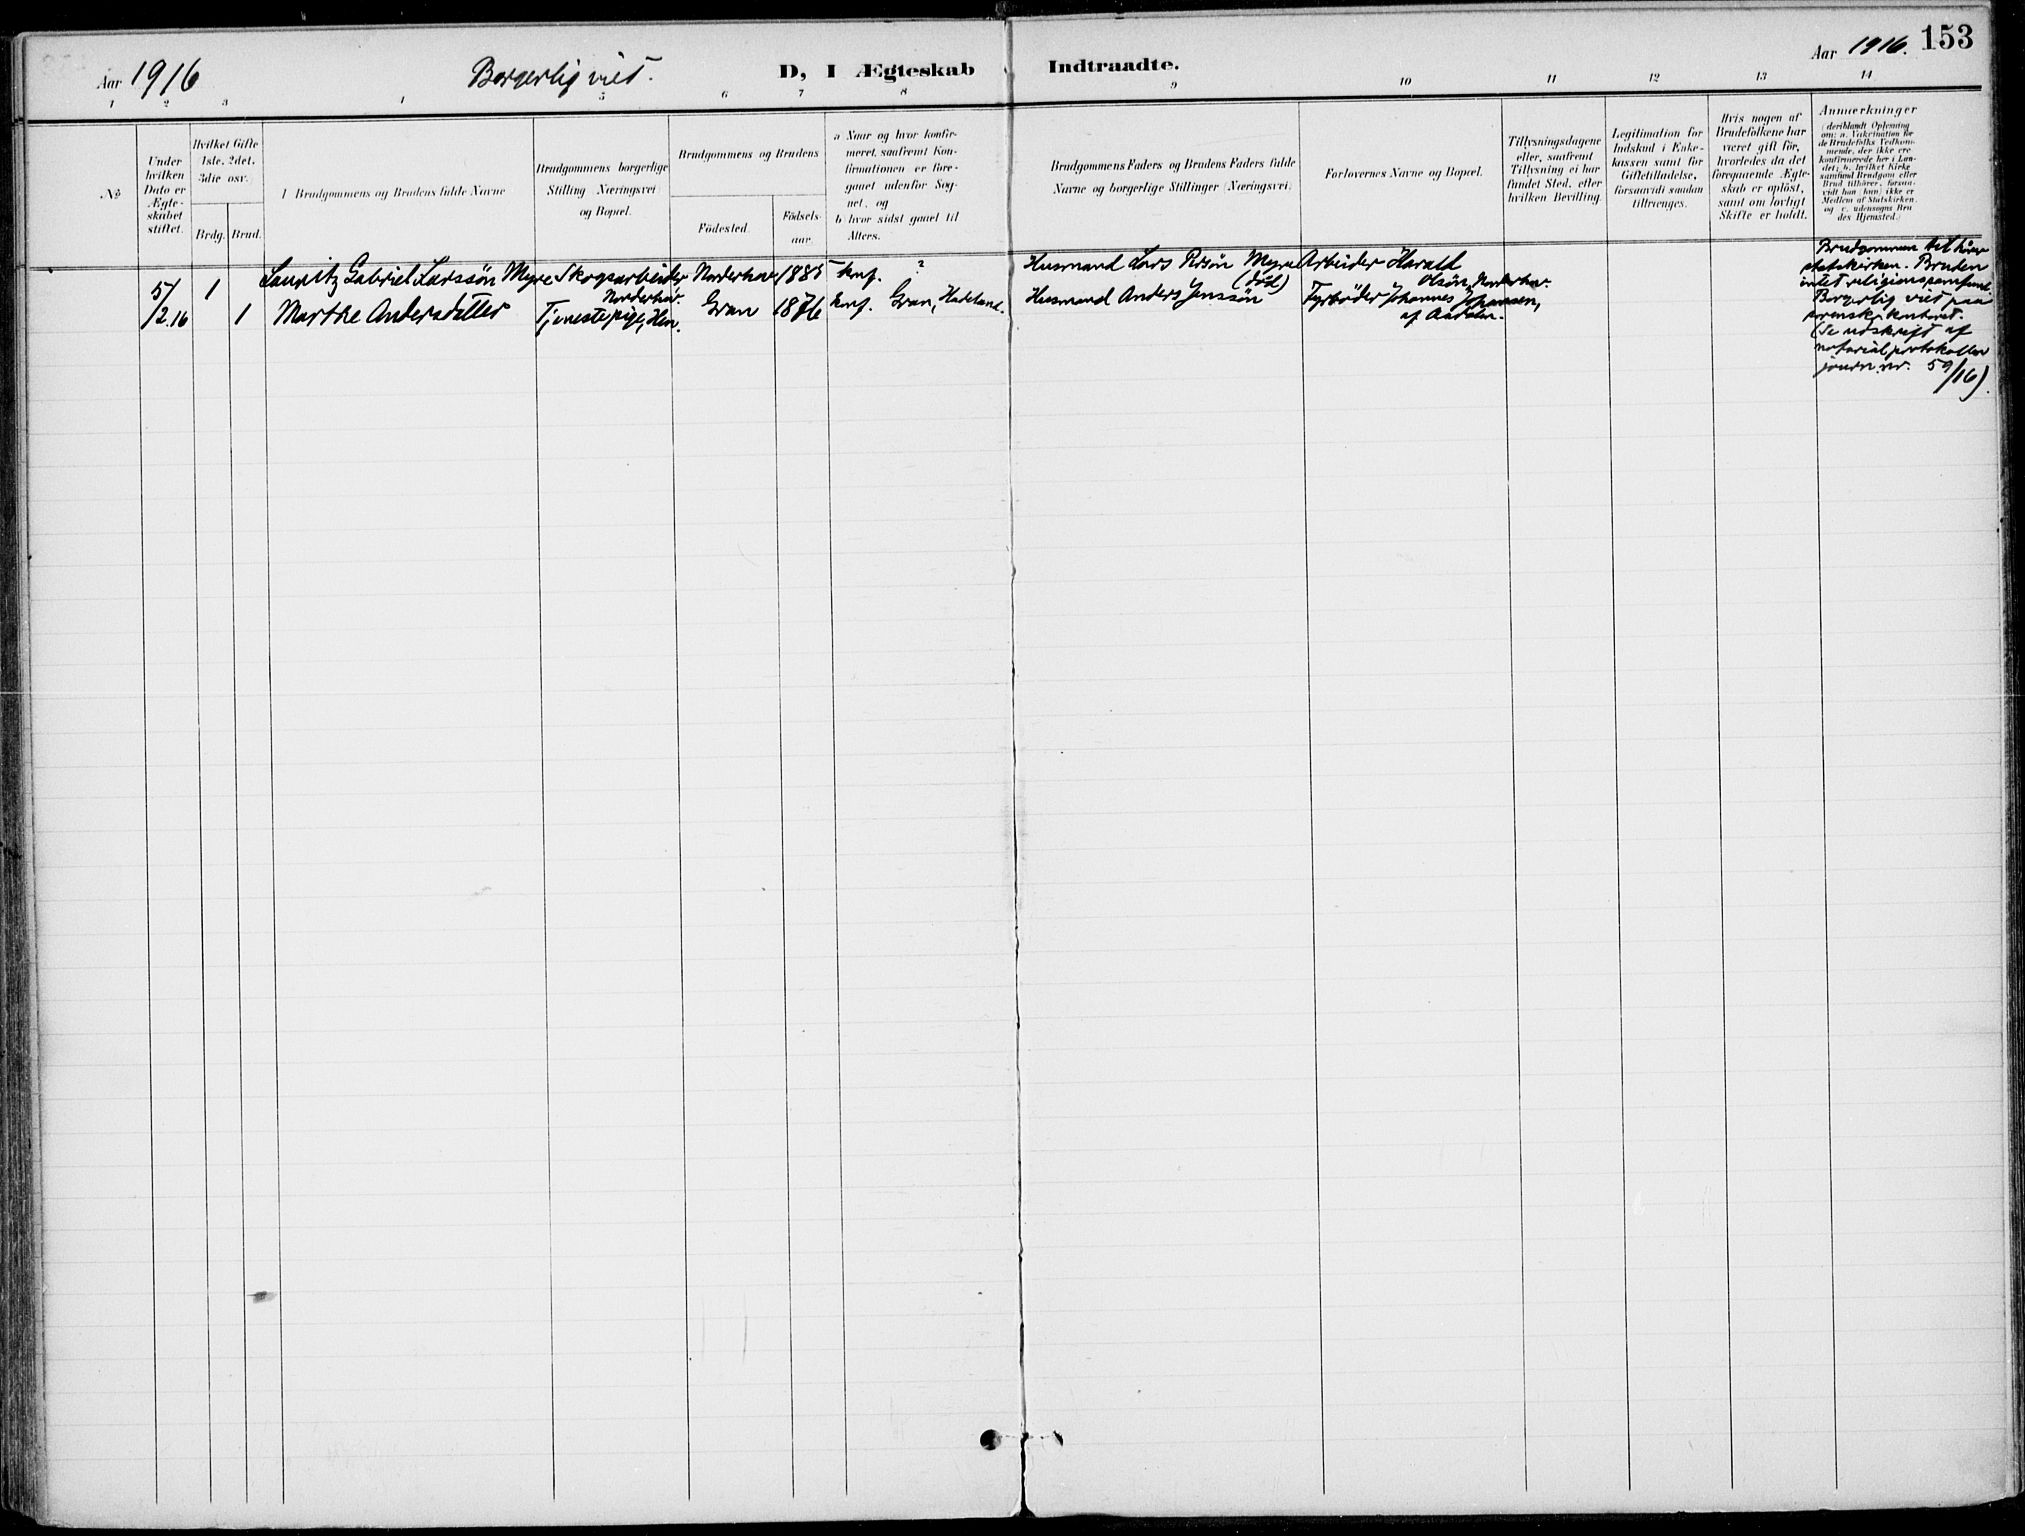 Aar 1916 Borgerlig viet. D, I Ægteskab Indtraadte. Aar 1916. 153
1 2 3 4 5 6 7 8 9 10 11 12 13 14
No
Under hvilken Dato er Ægteskabet stiftet.
Hvilket Gifte 1ste, 2det, 3die osv.
Brdg. Brud.
Brudgommens og Brudens fulde Navne
Brudgommens borgerlige
Stilling (Næringsvei)
og Bopæl.
Brudgommens og Brudens
Födested.
Födsels-
aar.
a Naar og hvor konfir-
meret, saafremt Kon-
firmationen er fore-
gaaet udenfor Sog-
net, og
b hvor sidst gaaet til
Alters.
Brudgommens Faders og Brudens Faders fulde
Navne og borgerlige Stillinger (Næringsvei)
Forlovernes Navne og Bopæl.
Tillysningsdagene
eller, saafremt
Tillysning ei har
fundet Sted, efter
hvilken Bevilling.
Legitimation for
Indskud i Enke-
kassen samt for
Giftetilladelse,
forsaavidt saadan
tiltrænges.
Hvis nogen af
Brudefolkene har
været gift för,
hvorledes da det
foregaaende Ægte-
skab er oplöst,
samt om lovligt
Skifte er holdt.
Anmærkninger
(deriblandt Oplysning
om: a. Vakcination for
de Brudefolks Vedkom-
mende, der ikke ere
konfirmerede her i Lan-
det; b. hvilket Kirke
samfund Brudgom eller
Brud tilhører, forsaa-
vidt han (hun) ikke er
Medlem af Statskirken,
og c. udensogns Bru
des Hjemsted.)
5/2.16
1 Lauritz Gabriel Larssön Myre Skogsarbeider Norderhov. Norderhov 1885 konf. ? Husmand Lars Myre (död) Arbeider Harald
Olsön, Norderhov.
1 Marthe Andersdatter Tjenestepige, Hen. Gran 1876 konf. Gran, Hadeland. Husmand Anders Jenssön Fyrböder Johannes Johansen,
af Aadalen.
Brudgommen tilhører
statskirken. Bruden
intet religionssamfund.
Borgerlig viet paa
sorenskr.kontoret.
(Se udskrift af
notarialprotokollen
journ.nr. 59/16).